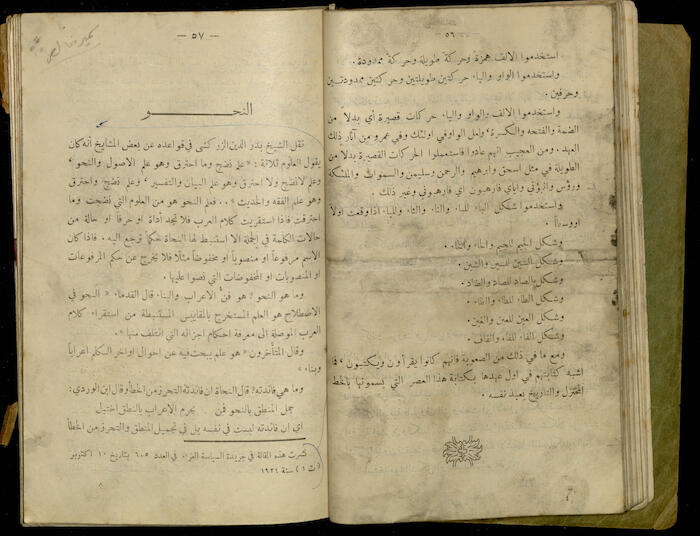 — ٥٦ —
استخدموا الالف همزة وحركة طويلة وحركة ممدودة .
واستخدموا الواو والياء حركتين طويلتين وحركتين ممدودتين
وحرفين .
واستخدموا الالف والواو والياء حركات قصيرة أي بدلا من
الضمة والفتحة والكسرة ، ولعل الواو في اولئك وفي عمرو من آثار ذلك
العهد . ومن العجيب انهم عادوا فاستعملوا الحركات القصيرة بدلا من
الطويلة في مثل اسحق وابرهيم والرحمن وسليمن والسموات والملئكة
ورؤس واياي فارهبون اي فارهبوني وغير ذلك .
واستخدموا شكل الباء للباء والتاء والثاء والياء اذا وقعت اولا
او وسطاً .
وشكل الجيم للجيم والحاء والخاء .
وشكل السين للسين والشين .
وشكل الصاد للصاد والضاد .
وشكل الطاء للطاء والظاء .
وشكل العين للعين والغين .
وشكل الفاء للفاء والقاف .
ومع ما في ذلك من الصعوبة فانهم كانوا يقرأون ويكتبون ، فما
اشبه كتابتهم في اول عهدها بكتابة هذا العصر التي يسمونها بالخط
المختزل والتاريخ يعيد نفسه .
— ٥٧ —
النحو
نقل الشيخ بدر الدين الزركشي في قواعده عن بعض المشايخ أنه كان
يقول العلوم ثلاثة : « علم نضج وما احترق وهو علم الاصول والنحو ،
وعلم لا نضج ولا احترق وهو علم البيان والتفسير ، وعلم نضج واحترق
وهو علم الفقه والحديث » . . فعلم النحو هو من العلوم التي نضجت وما
احترقت فاذا استقريت كلام العرب فلا تجد أداة او حرفا او حالة من
حالات الكلمة في الجملة الا استنبط لها النحاة حكماً ترجع اليه . فاذا كان
الاسم مرفوعاً او منصوباً او مخفوضاً مثلا فلا يخرج عن حكم المرفوعات
او المنصوبات او المخفوضات التي نصوا عليها .
وما هو النحو ؟ هو فن الاعراب والبناء قال القدماء « النحو في
الاصطلاح هو العلم المستخرج بالمقاييس المستنبطة من استقراء كلام
العرب الموصلة الى معرفة احكام اجزائه التي ائتلف منها » .
وقال المتأخرون « هو علم يبحث فيه عن احوال اواخر الكلم اعراباً
وبناء »
وما هي فائدته ؟ قال النحاة ان فائدته التحرز من الخطأ وقال ابن الوردي :
جمل المنطق بالنحو فمن يحرم الاعراب بالنطق اختبل
اي ان فائدته ليست في نفسه بل في تجميل المنطق والتحرز من الخطأ
نشرت هذه المقالة في جريدة السياسة الغراء في العدد ٦٠٥ بتاريخ ١٠ اكتوبر
( ت ١ ) سنة ١٩٢٤